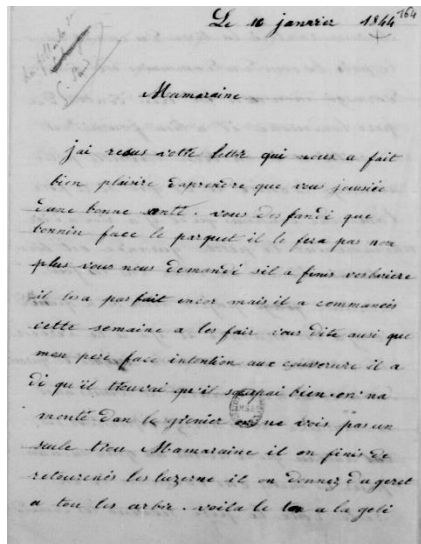 164
Le 10 janvier 1844
Mamaraine
jai resus votte lettre qui nous a fait
bien plaisire daprendre que vous jousiée
dune bonne santé. vous des fandé que
bonnin face le parquet il le fera pas non
plus vous nous demandé sil a finis vosbariere
il lesa pas fait encor mais il a commancés
cette semaine a les fair vous dite ausi que
mon pere face intention aux couverure il a
di qu'il trouvai qu'il soupai bien. on na
monté dan le grenier on ne vois pas un
seule trou Mamaraine il on finis de
retournés les luzerne il on donnez du geret
a tou les arbre. voila le tem a la gelé